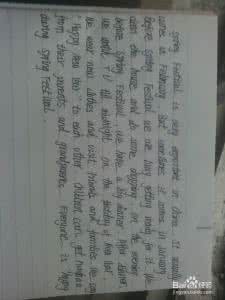 Spring Festival is very important in China. It usually
comes in February. But sometimes it comes in January.
before Spring Festival, we are busy getting ready for it. We
clean the house and do some shopping. On the evening
before Spring Festival, we have a big dinner. After dinner,
we watch TV till midnight. On the of
we wear new clothes and visit friends and families. We say
"Happy New Year" to each other. Children can get
from their parents and grandparents. Everyone is happy
during Spring Festival.
Baidu经验
jingyan.baidu.com